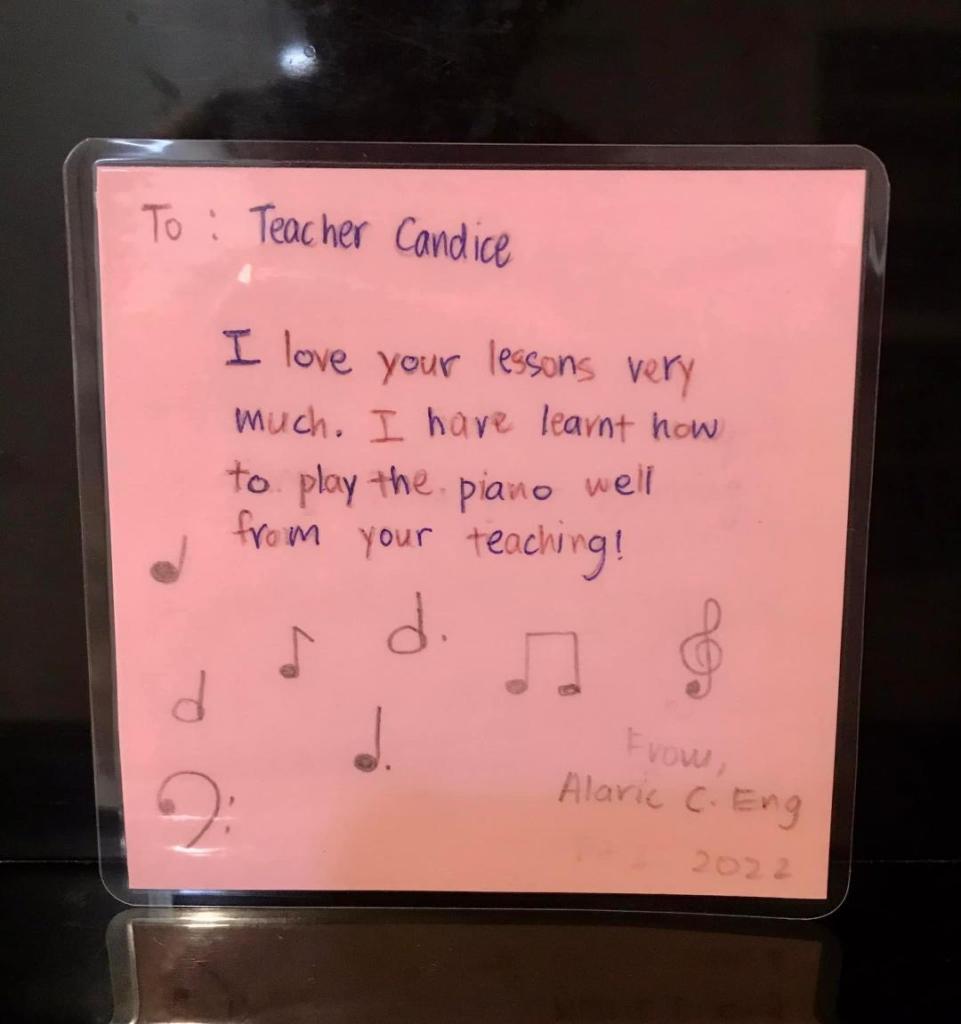 To : Teacher Candice
I love your lessons very
much. I have learnt how
to play the piano well
from your teaching!
From,
Alaric C. Eng
2022